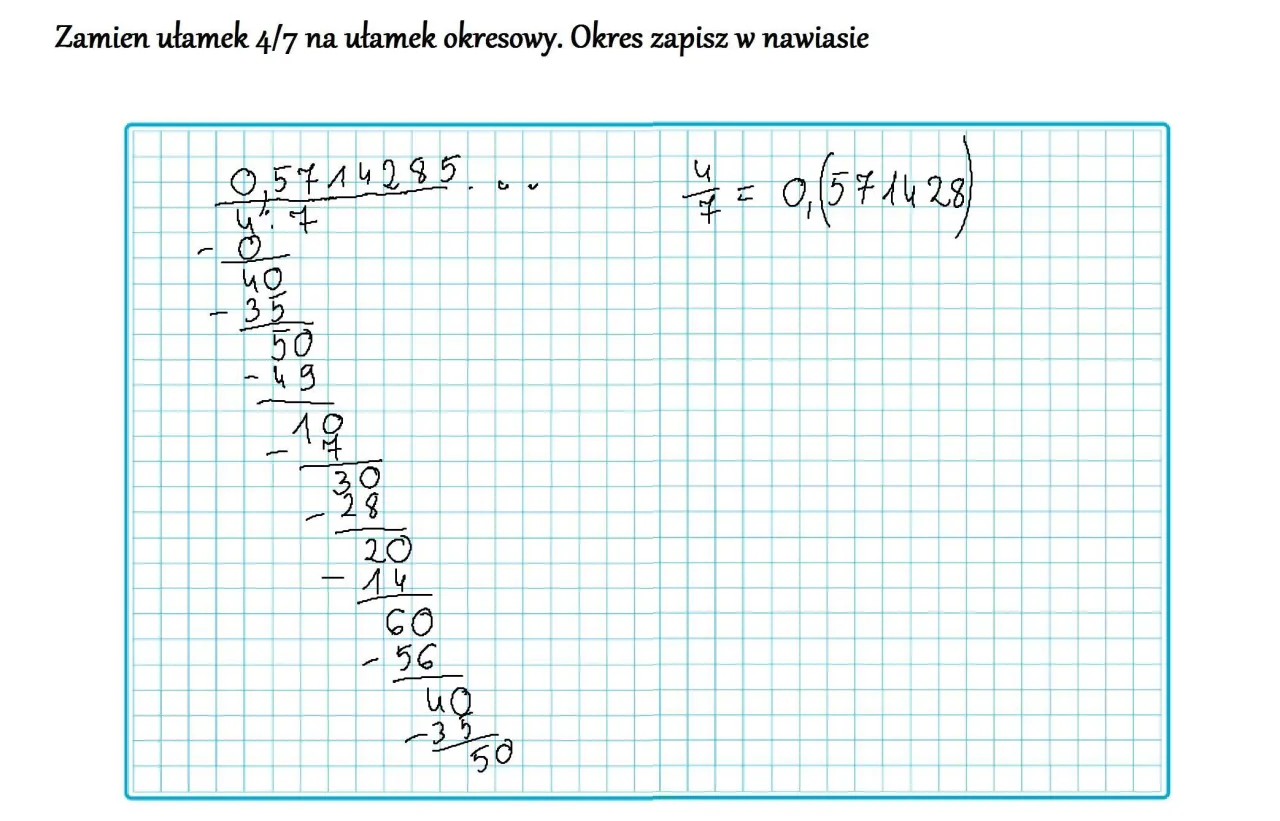 Zamien ułamek 4/7 na ułamek okresowy. Okres zapisz w nawiasie
0,5714285...
4 : 7
- 0
40
- 35
50
- 49
10
- 7
30
- 28
20
- 14
60
- 56
40
- 35
50
4/7 = 0,(571428)